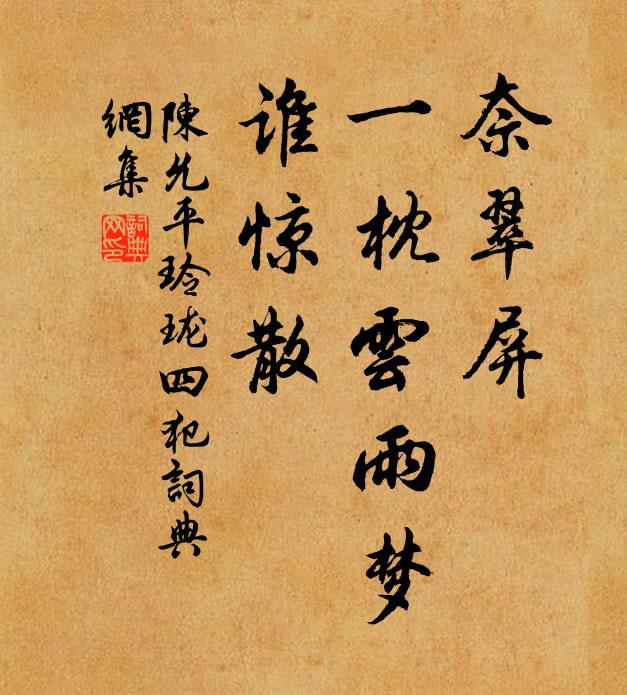 奈翠屏
一枕雲雨梦
谁惊散
陳允平玲珑四犯詞典
網集
詞典网印